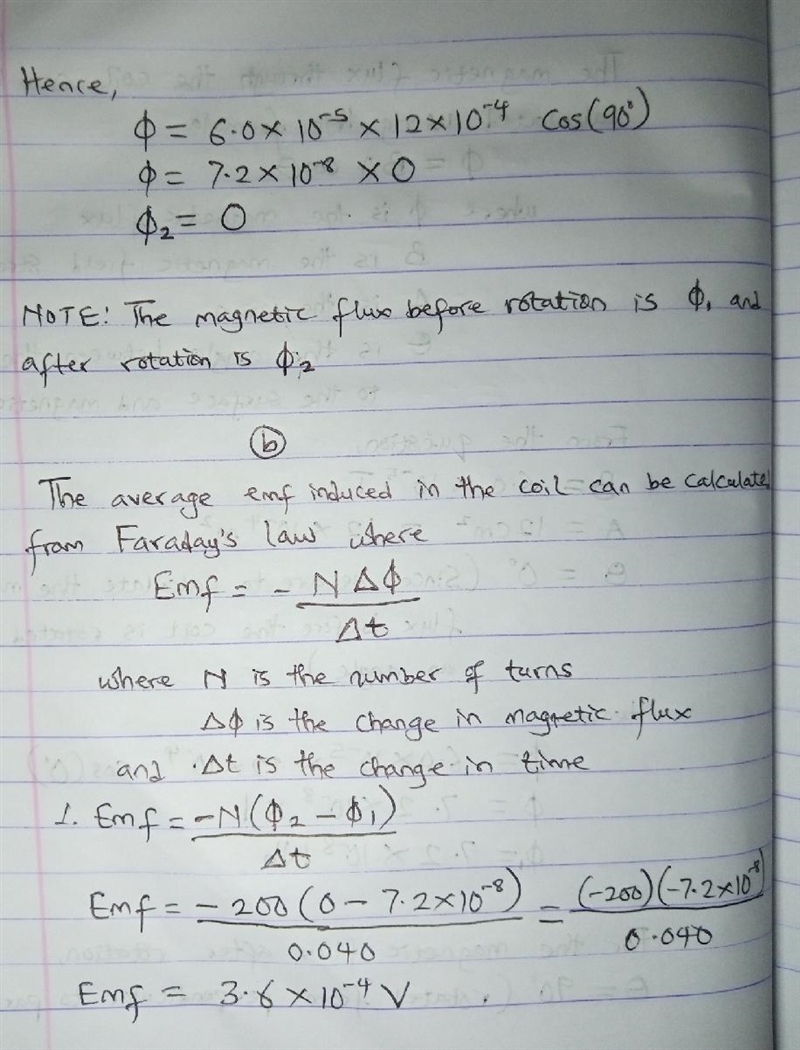 Hence,
Φ = 6.0 × 10⁻⁵ × 12 × 10⁻⁴ Cos(90°)
Φ = 7.2 × 10⁻⁸ × 0
Φ₂ = 0
NOTE: The magnetic flux before rotation is Φ₁ and
after rotation is Φ₂
(b)
The average emf induced in the coil can be calculated
from Faraday's law where
Emf = - NΔΦ
Δt
where N is the number of turns
ΔΦ is the change in magnetic flux
and Δt is the change in time
1. Emf = -N(Φ₂ - Φ₁)
Δt
Emf = - 200 (0 - 7.2×10⁻⁸) = (-200)(-7.2×10⁻⁸)
0.040 0.040
Emf = 3.6 × 10⁻⁴ V .